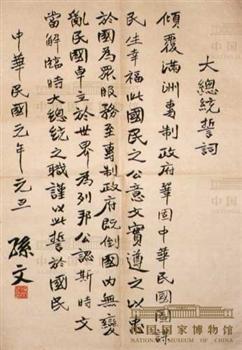 大總統誓詞
傾覆滿洲專制政府鞏固中華民國圖謀
民生幸福此國民之公意文實遵之以忠
於國為眾服務至專制政府既倒國內無變
亂民國卓立於世界為列邦公認斯時文
當解臨時大總統之職謹以此誓於國民
中華民國元年元旦
孫文
中國國家博物館
NATIONAL MUSEUM OF CHINA